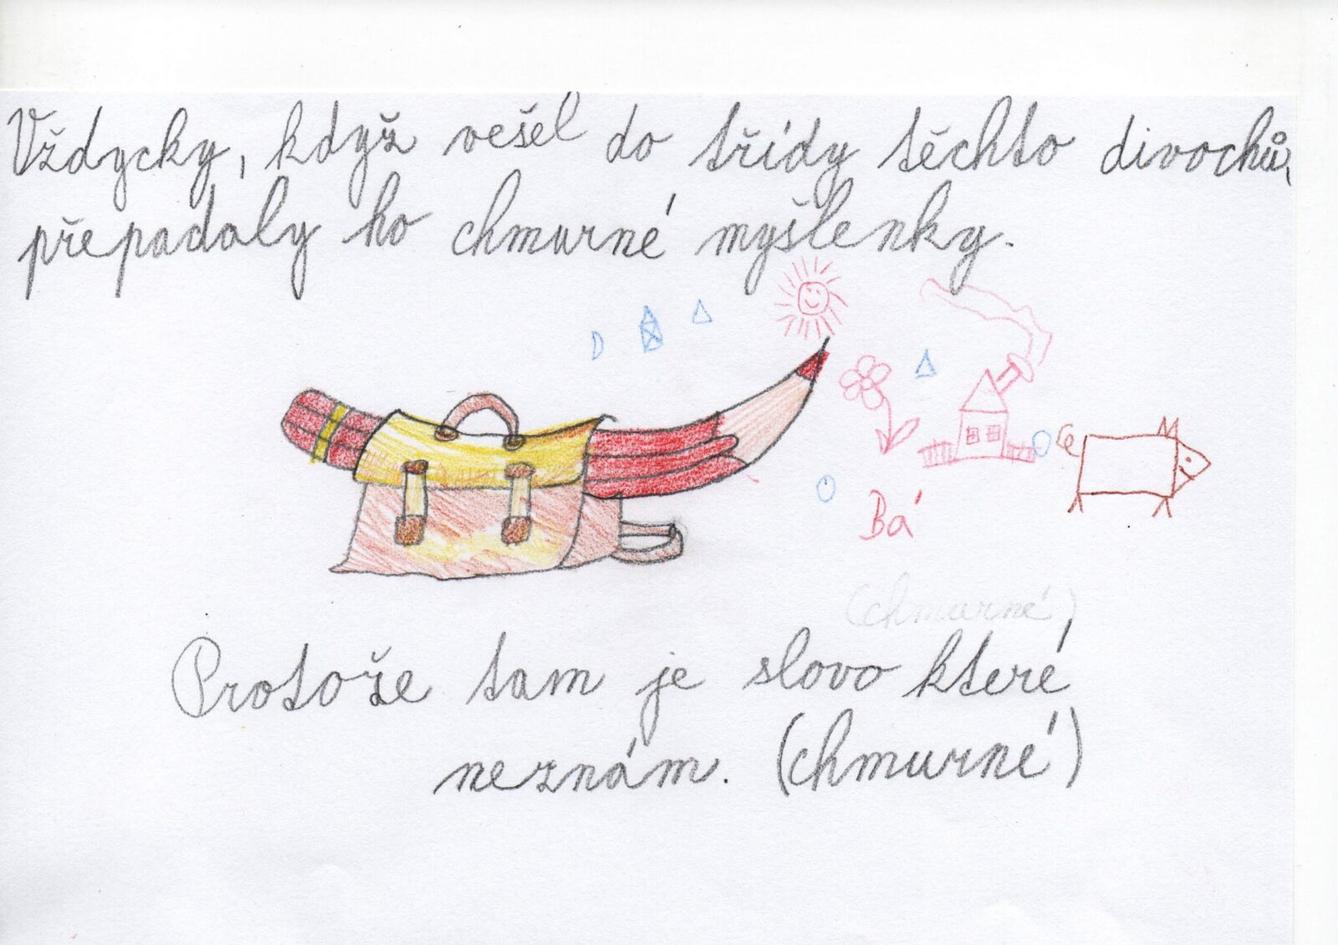 Vždycky, když vešel do třídy těchto divochů,
přepadaly ho chmurné myšlenky.
Bá
(chmurné)
Protože tam je slovo které
neznám. (chmurné)